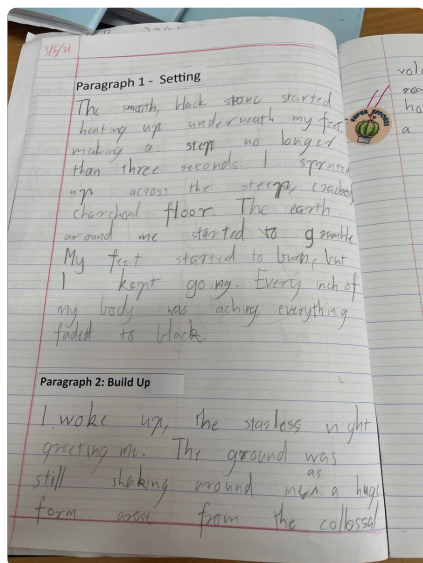 3/5/21
Paragraph 1 - Setting
The smooth, black stone started
heating up underneath my feet
making a step no longer
than three seconds. I sprinted
up across the steep,
charchoal floor. The earth
around me started to grumble.
My feet started to burn, but
I kept going. Every inch of
my body was aching everything
faded to black.
Paragraph 2: Build Up
I woke up, the starless night
greeting me. The ground was
still shaking around me as a huge
form arose from the collossal
SUPER EFFORT
ho
a